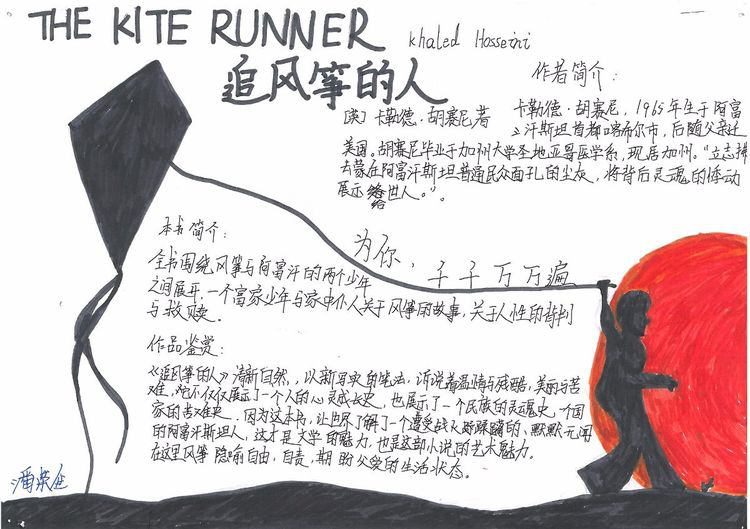 THE KITE RUNNER
Khaled Hosseini
追风筝的人
[美]卡勒德·胡赛尼 著
作者简介:
卡勒德·胡赛尼,1965年生于阿富
汗斯坦首都喀布尔市,后随父亲迁
美国。胡赛尼毕业于加州大学圣地亚哥医学系,现居加州。“立志拂
去蒙在阿富汗斯坦普通民众面孔的尘灰,将背后灵魂的悸动
展示给世人。”。
给
为你,千千万万遍
本书简介:
全书围绕风筝与阿富汗的两个少年
之间展开,一个富家少年与家中仆人关于风筝的故事,关于人性的背叛
与救赎。
作品鉴赏:
《追风筝的人》清新自然,以新写实的笔法,诉说着温情与残酷,美丽与苦
难,它不仅仅展示了一个人的心灵成长史,也展示了一个民族的灵魂史,一个国
家的苦难史。因为这本书,让世界了解了一个遭受战火蹂躏的、默默无闻
的阿富汗斯坦人,这才是文学的魅力,也是这部小说的艺术魅力。
在这里风筝隐喻自由,自责,期盼父爱的生活状态。